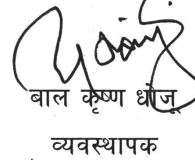 बाल कृष्ण धोजू
व्यवस्थापक